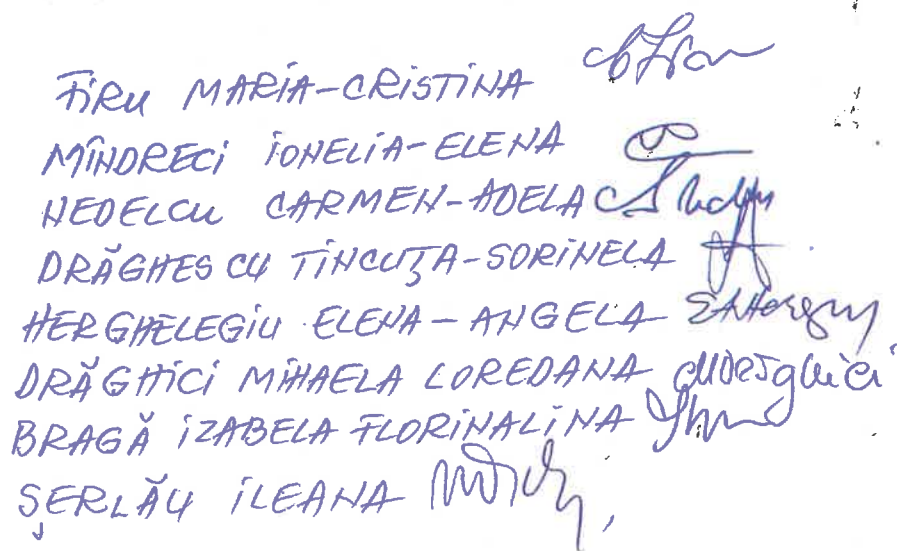 FIRU MARIA-CRISTINA
MÎNDRECI IONELIA-ELENA
NEDELCU CARMEN-ADELA
DRĂGHESCU TINCUȚA-SORINELA
HERGHELEGIU ELENA-ANGELA
DRĂGHICI MIHAELA LOREDANA
BRAGĂ IZABELA FLORINALINA
ȘERLĂU ILEANA